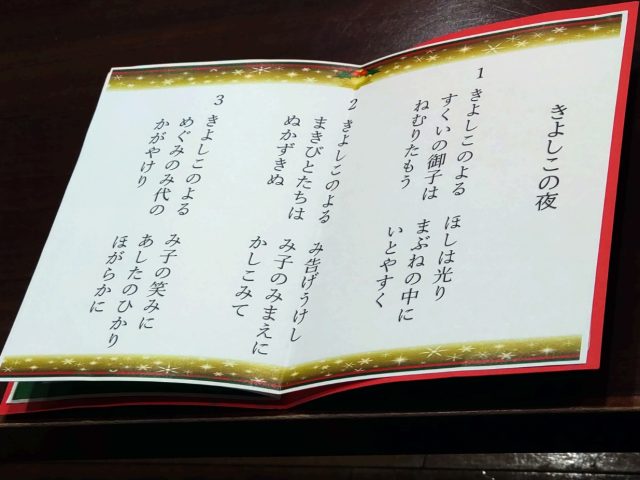 きよしこの夜
1 きよしこのよる ほしは光り
すくいの御子は まぶねの中に
ねむりたもう いとやすく
2 きよしこのよる み告げうけし
まきびとたちは み子のみまえに
ぬかずきぬ かしこみて
3 きよしこのよる み子の笑みに
めぐみのみ代の あしたのひかり
かがやけり ほがらかに